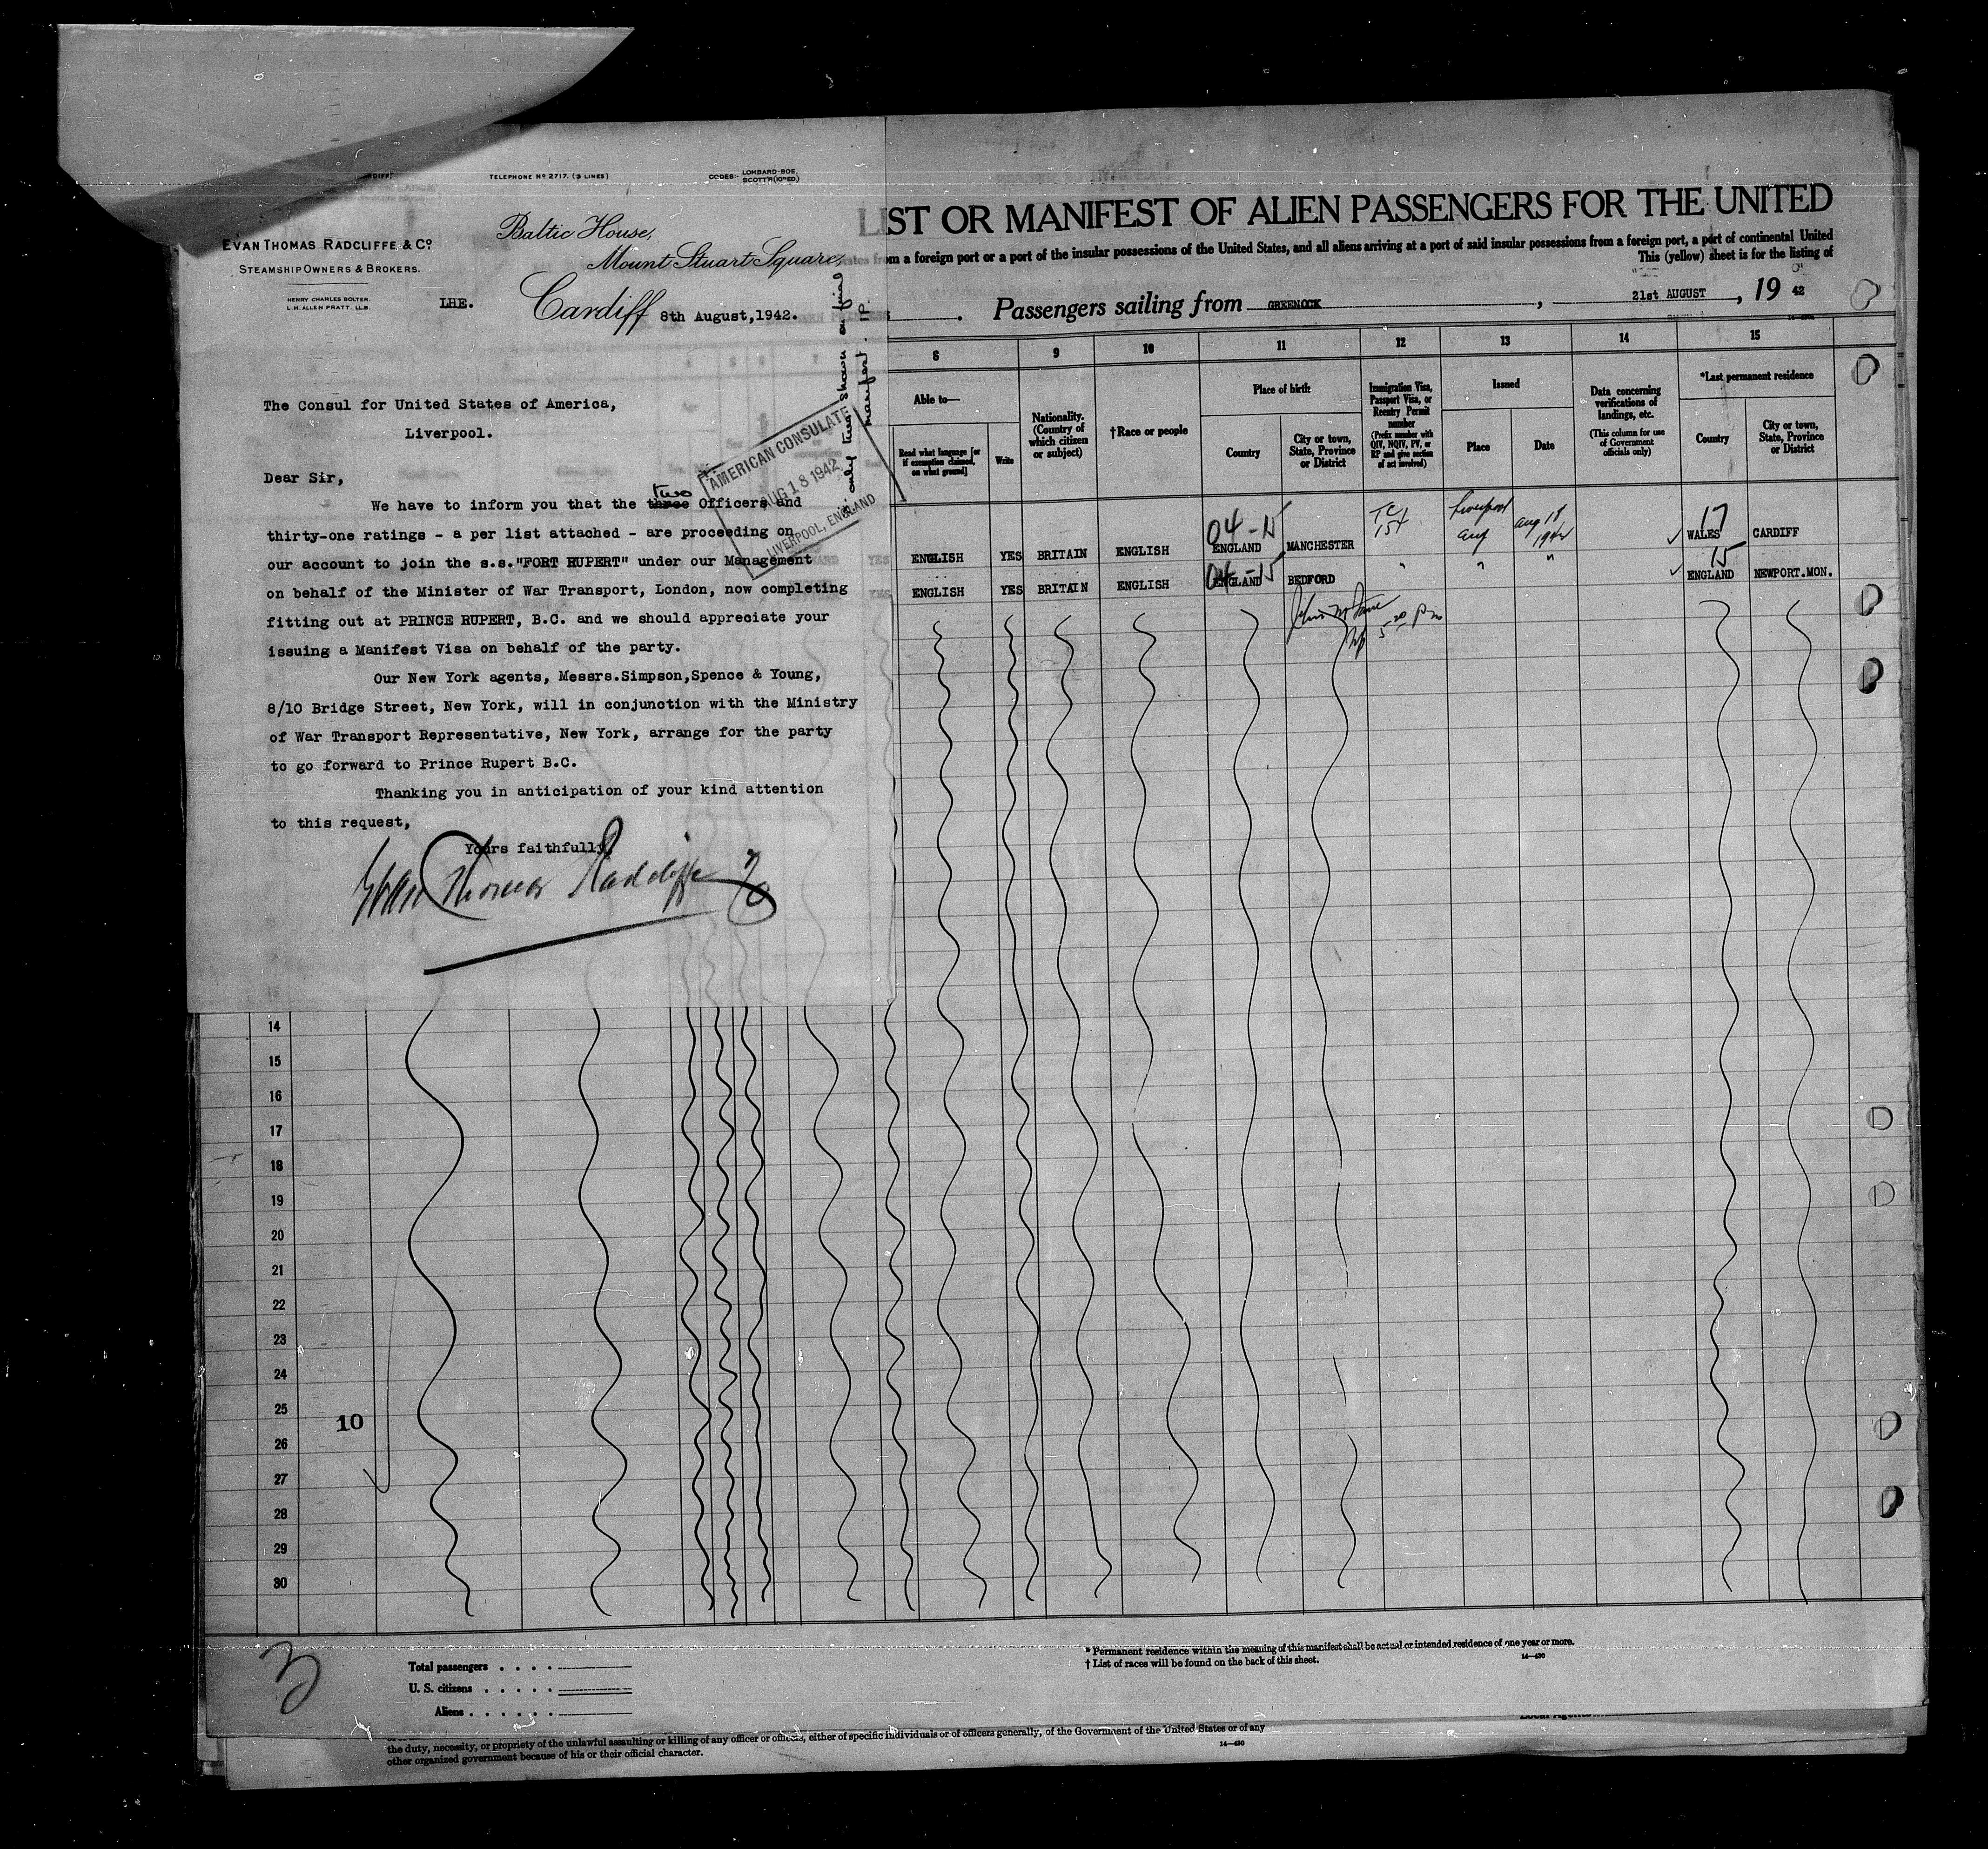 TELEPHONE Nº 2717. (3 LINES)
CODES:- LOMBARD-BOE,
SCOTT'S (10TH ED)
EVAN THOMAS RADCLIFFE & Cº
STEAMSHIP OWNERS & BROKERS.
HENRY CHARLES BOLTER.
L.H. ALLEN PRATT. LL.B.
Baltic House,
Mount Stuart Square,
LHE.
Cardiff 8th August,1942.
only two shown on final
manifest. IP.
The Consul for United States of America,
Liverpool.
AMERICAN CONSULATE
AUG 18 1942
LIVERPOOL, ENGLAND
Dear Sir,
two
We have to inform you that the three Officers and
thirty-one ratings - a per list attached - are proceeding on
our account to join the s.s."FORT RUPERT" under our Management
on behalf of the Minister of War Transport, London, now completing
fitting out at PRINCE RUPERT, B.C. and we should appreciate your
issuing a Manifest Visa on behalf of the party.
Our New York agents, Messrs.Simpson,Spence & Young,
8/10 Bridge Street, New York, will in conjunction with the Ministry
of War Transport Representative, New York, arrange for the party
to go forward to Prince Rupert B.C.
Thanking you in anticipation of your kind attention
to this request,
Yours faithfully,
Evan Thomas Radcliffe & Co
LIST OR MANIFEST OF ALIEN PASSENGERS FOR THE UNITED
from a foreign port or a port of the insular possessions of the United States, and all aliens arriving at a port of said insular possessions from a foreign port, a part of continental United
This (yellow) sheet is for the listing of
Passengers sailing from GREENOCK, 21st AUGUST, 19 42
8 9 10 11 12 13 14 15
Able to—
Read what language [or if exemption claimed, on what ground]
Write
Nationality. (Country of which citizen or subject)
†Race or people
Place of birth
Country
City or town, State, Province or District
Immigration Visa, Passport Visa, or Reentry Permit number
(Prefix number with QIV, NQIV, PV, or RP and give section of act involved)
Issued
Place
Date
Data concerning verifications of landings, etc.
(This column for use of Government officials only)
*Last permanent residence
Country
City or town, State, Province or District
04-15 Liverpool Aug 18 1942 17
ENGLISH YES BRITAIN ENGLISH ENGLAND MANCHESTER WALES CARDIFF
04-15 " " " 15
ENGLISH YES BRITAIN ENGLISH ENGLAND BEDFORD ENGLAND NEWPORT.MON.
14
15
16
17
18
19
20
21
22
23
24
25
10
26
27
28
29
30
Total passengers . . . .
U. S. citizens . . . . .
Aliens . . . . . .
* Permanent residence within the meaning of this manifest shall be actual or intended residence of one year or more.
† List of races will be found on the back of this sheet.
14—430
the duty, necessity, or propriety of the unlawful assaulting or killing of any officer or officers, either of specific individuals or of officers generally, of the Government of the United States or of any
other organized government because of his or their official character.
14—430